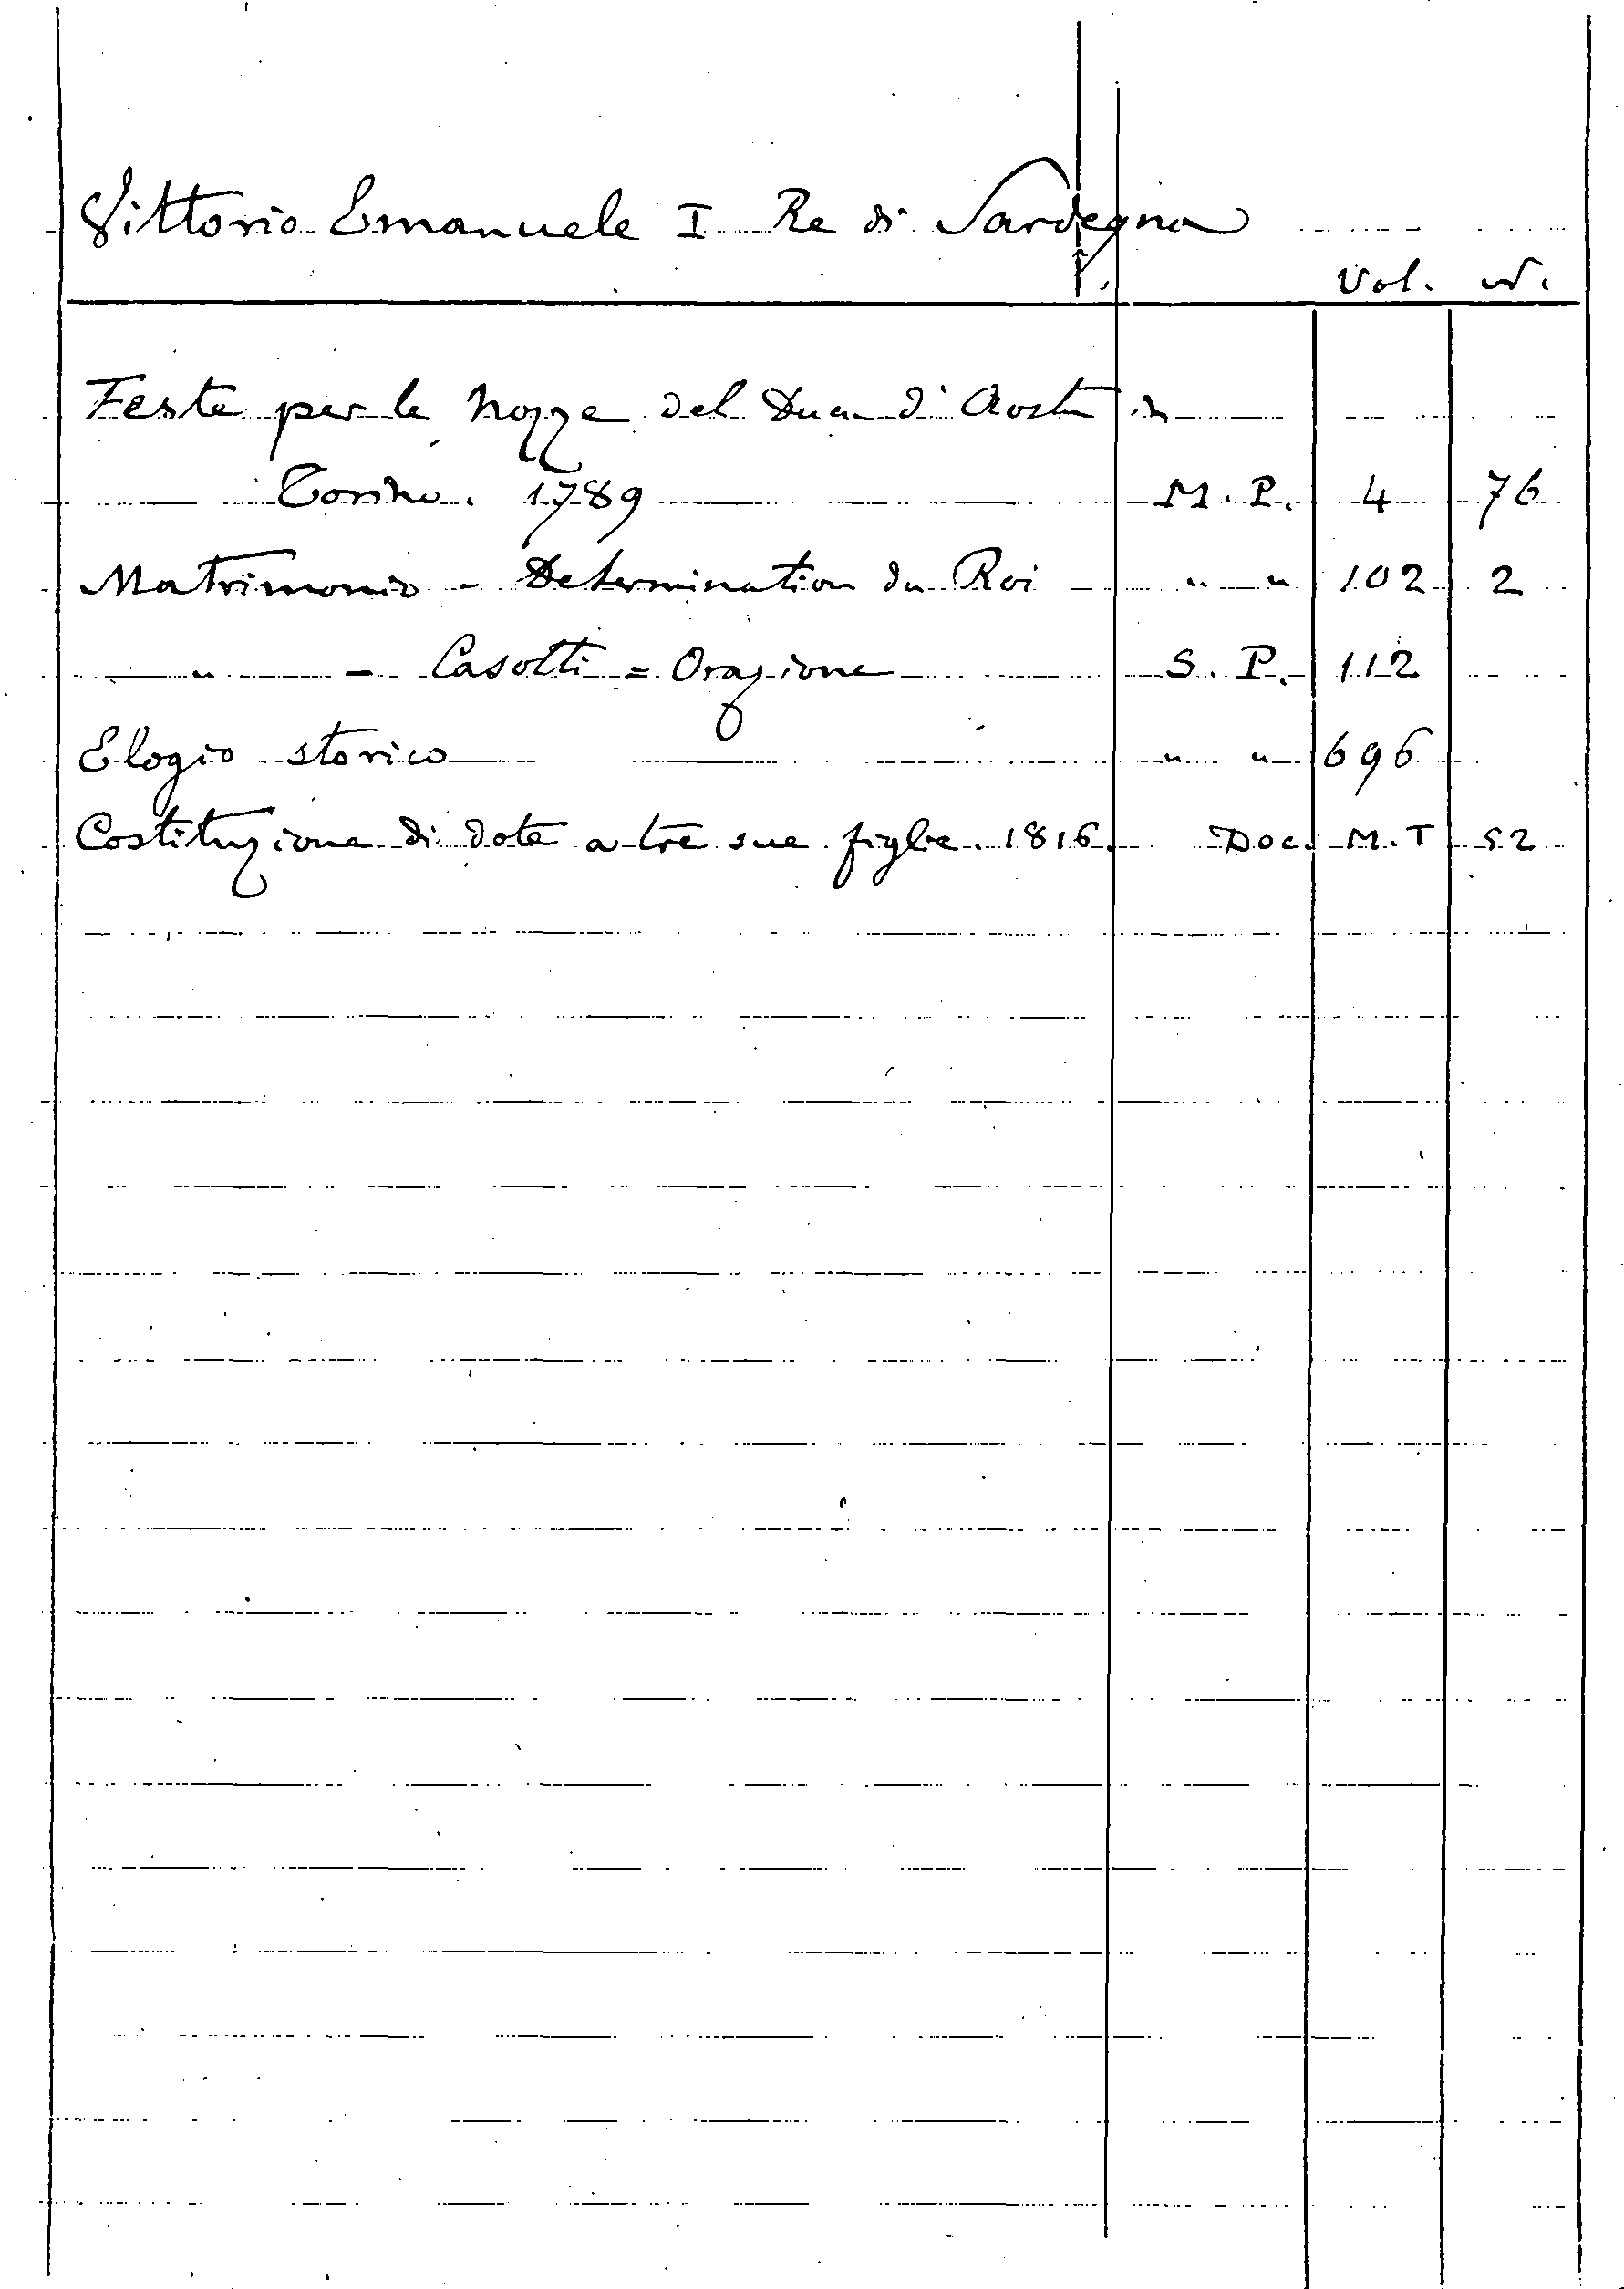 Vittorio Emanuele I Re di Sardegna
Vol. N.
Feste per le Nozze del Duca d'Aosta in
Torino. 1789 M. P. 4 76
Matrimonio - Determination du Roi " " 102 2
" - Casotti = Orazione S. P. 112
Elogio storico " " 696
Costituzione di dote a tre sue figlie. 1816. Doc. M. T 52